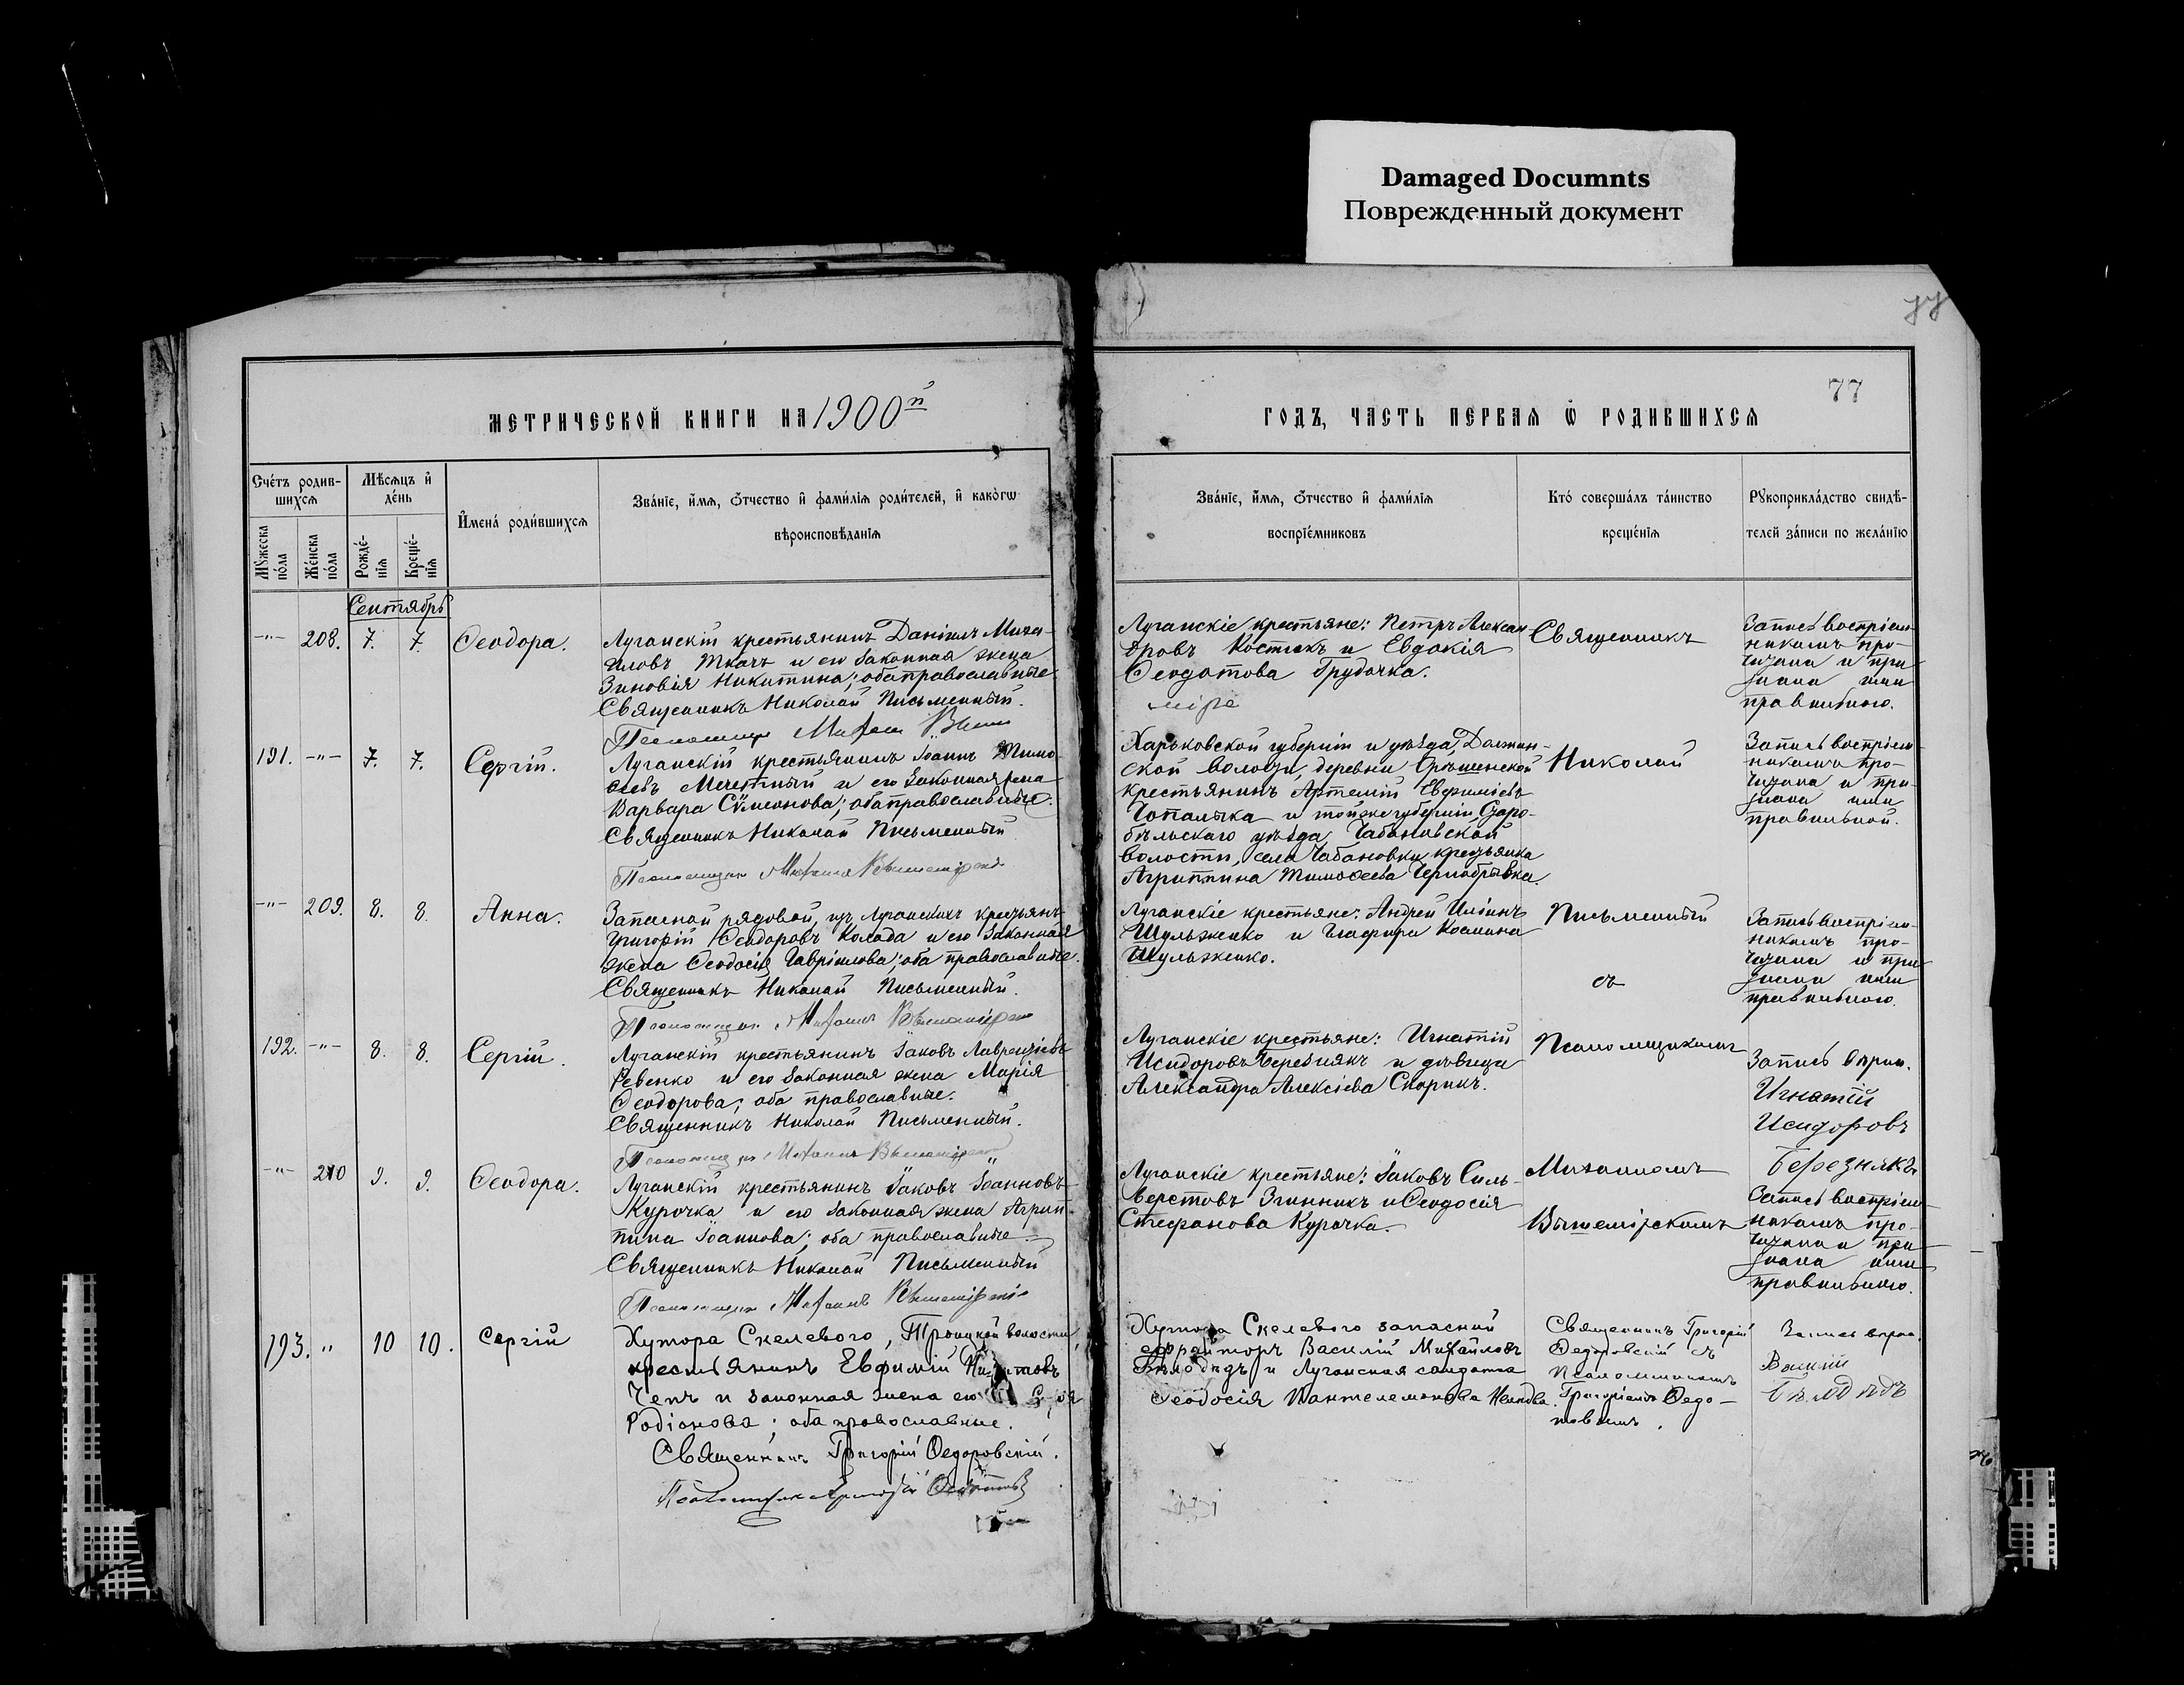 Damaged Documnts
Поврежденный документ
77
77
МЕТРИЧЕСКОЙ КНИГИ НА 1900й
ГОДЪ, ЧАСТЬ ПЕРВАЯ Ѿ РОДИВШИХСЯ
Счетъ родив-
шихся
Мѣсяцъ и
день
Мужеска
пола
Женска
пола
Рожде-
нія
Креще-
нія
Имена родившихся
Званіе, имя, отчество и фамилія родителей, и какогѡ
вѣроисповѣданія
Званіе, имя, отчество и фамилія
воспріемниковъ
Кто совершалъ таинство
крещенія
Рукоприкладство свидѣ-
телей записи по желанію
Сентябрь
-"- 208. 7. 7. Ѳеодора.
Луганскій крестьянинъ Даніилъ Миха-
иловъ Ткачъ и его законная жена
Зиновія Никитина; оба православные
Священникъ Николай Письменный.
Псаломщикъ
Луганскіе крестьяне: Петръ Алексан-
дровъ Костюкъ и Евдокія
Ѳеодотова Грудочка.
Священникъ
Запись воспріем-
никамъ про-
читана и при-
знана ими
правильною.
191. -"- 7. 7. Сергій.
Луганскій крестьянинъ Іоаннъ Тимо-
ѳеевъ и его законная жена
Варвара Сѵмеонова; оба православные.
Священникъ Николай Письменный
Псаломщикъ Михаилъ Вышемірскій
Харьковской губерніи и уѣзда,
ской волости, деревни
крестьянинъ Артемій Евфиміевъ
и той же губерніи Старо-
бѣльскаго уѣзда, Чабановской
волости, села Чабановки крестьянка
Агриппина Тимоѳеева Чернобрывка.
Николай
Запись воспріем-
никамъ про-
читана и при-
знана ими
правильной.
-"- 209. 8. 8. Анна.
Запасной рядовой, изъ Луганскихъ крестьянъ
Григорій Ѳеодоровъ Коляда и его законная
жена Ѳеодосія Гавріилова; оба православные.
Священникъ Николай Письменный.
Псаломщикъ Михаилъ Вышемірскій
Луганскіе крестьяне: Андрей Иліинъ
Шульженко и Глафира Космина
Шульженко.
Письменный
съ
Запись воспріем-
никамъ про-
читана и при-
знана ими
правильною.
192. -"- 8. 8. Сергій.
Луганскій крестьянинъ Іаковъ Лаврентіевъ
Ревенко и его законная жена Марія
Ѳеодорова; оба православные.
Священникъ Николай Письменный.
Псаломщикъ Михаилъ Вышемірскій
Луганскіе крестьяне: Игнатій
Исидоровъ Березнякъ и дѣвица
Александра Алексіева Скорикъ.
Псаломщикомъ
Запись вѣрна.
Игнатій
Исидоровъ
Березнякъ
-"- 210 9. 9. Ѳеодора.
Луганскій крестьянинъ Іаковъ Іоанновъ
Курочка и его законная жена Агрип-
пина Іоаннова; оба православные.
Священникъ Николай Письменный
Псаломщикъ Михаилъ Вышемірскій
Луганскіе крестьяне: Іаковъ Силь-
верстовъ Згинникъ и Ѳеодосія
Стефанова Курочка.
Михаиломъ
Вышемірскимъ
Запись воспріем-
никамъ про-
читана и при-
знана ими
правильною.
193. " 10 10. Сергій
Хутора Скелевого, Троицкой волости,
крестьянинъ Евфимій
Чепъ и законная жена его
Родіонова; оба православные.
Священникъ Григорій Ѳедоровскій.
Псаломщикъ Григорій
Хутора Скелевого запасной
ефрейторъ Василій Михайловъ
Бѣлодѣдъ и Луганская солдатка
Ѳеодосія Пантелеимонова
Священникъ Григорій
Ѳедоровскій съ
Псаломщикомъ
Григоріемъ Ѳедо-
товымъ.
Запись вѣрна.
Василій
Бѣлодѣдъ